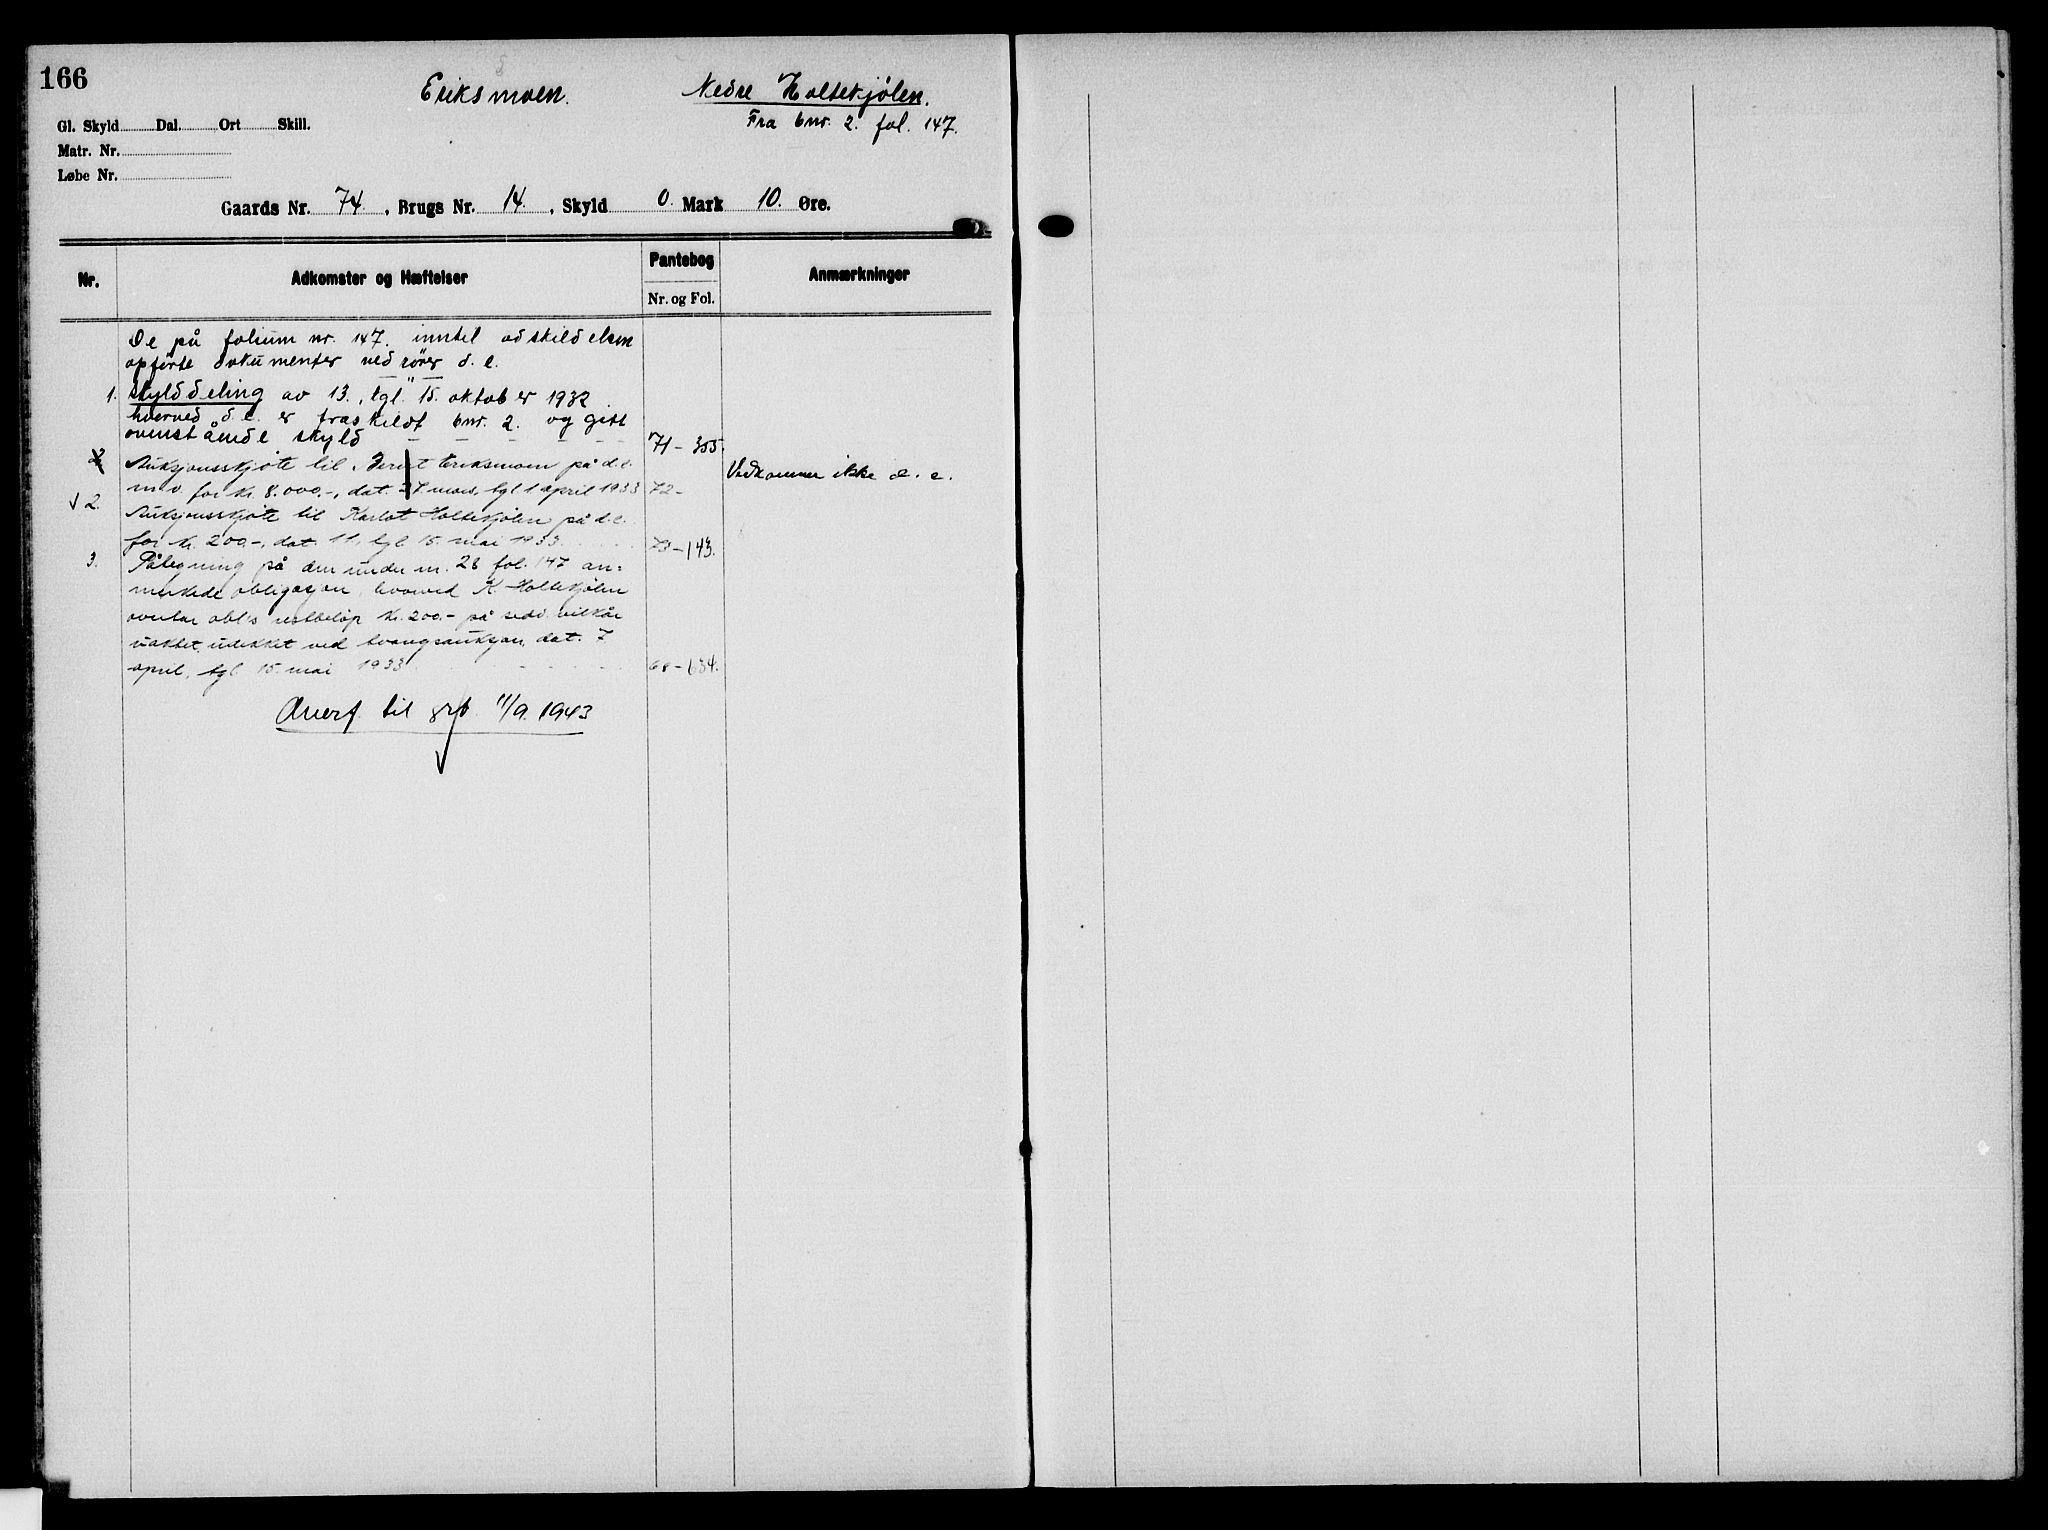 166
Eriksmoen.
Nedre Holtekjølen.
Fra bnr. 2. fol. 147.
Gl. Skyld Dal. Ort Skill.
Matr. Nr.
Løbe Nr.
Gaards Nr. 74. , Brugs Nr. 14. , Skyld 0. Mark 10. Øre.
Nr. Adkomster og Hæftelser Pantebog Nr. og Fol. Anmærkninger
De på folium nr. 147. inntil adskildelsen
opførte dokumenter vedrører d. e.
1. Skylddeling av 13., tgl. 15. oktober 1932
hvorved d. e. er fraskildt bnr. 2. og gitt
ovenstående skyld 71 - 355.
2 Auksjonsskjøte til Eriksmoen på d.e.
m.v. for kr. 8.000.-, dat. 27. mars, tgl 1 april 1933 72- Vedkommer ikke d. e.
2. Auksjonsskjøte til Karlot Holtekjølen på d.e.
for kr. 200.-, dat. 11., tgl 15. mai 1933. 73-143.
3. Påtegning på den under nr. 28 fol. 147 an-
merkede obligasjon, hvorved K. Holtekjølen
overtar obl's restbeløp kr. 200.- på sedv. vilkår
vaktet ved tvangsauksjon, dat. 7
april, tgl 15. mai 1933. 68-634.
Overf. til grb. 11/9. 1943